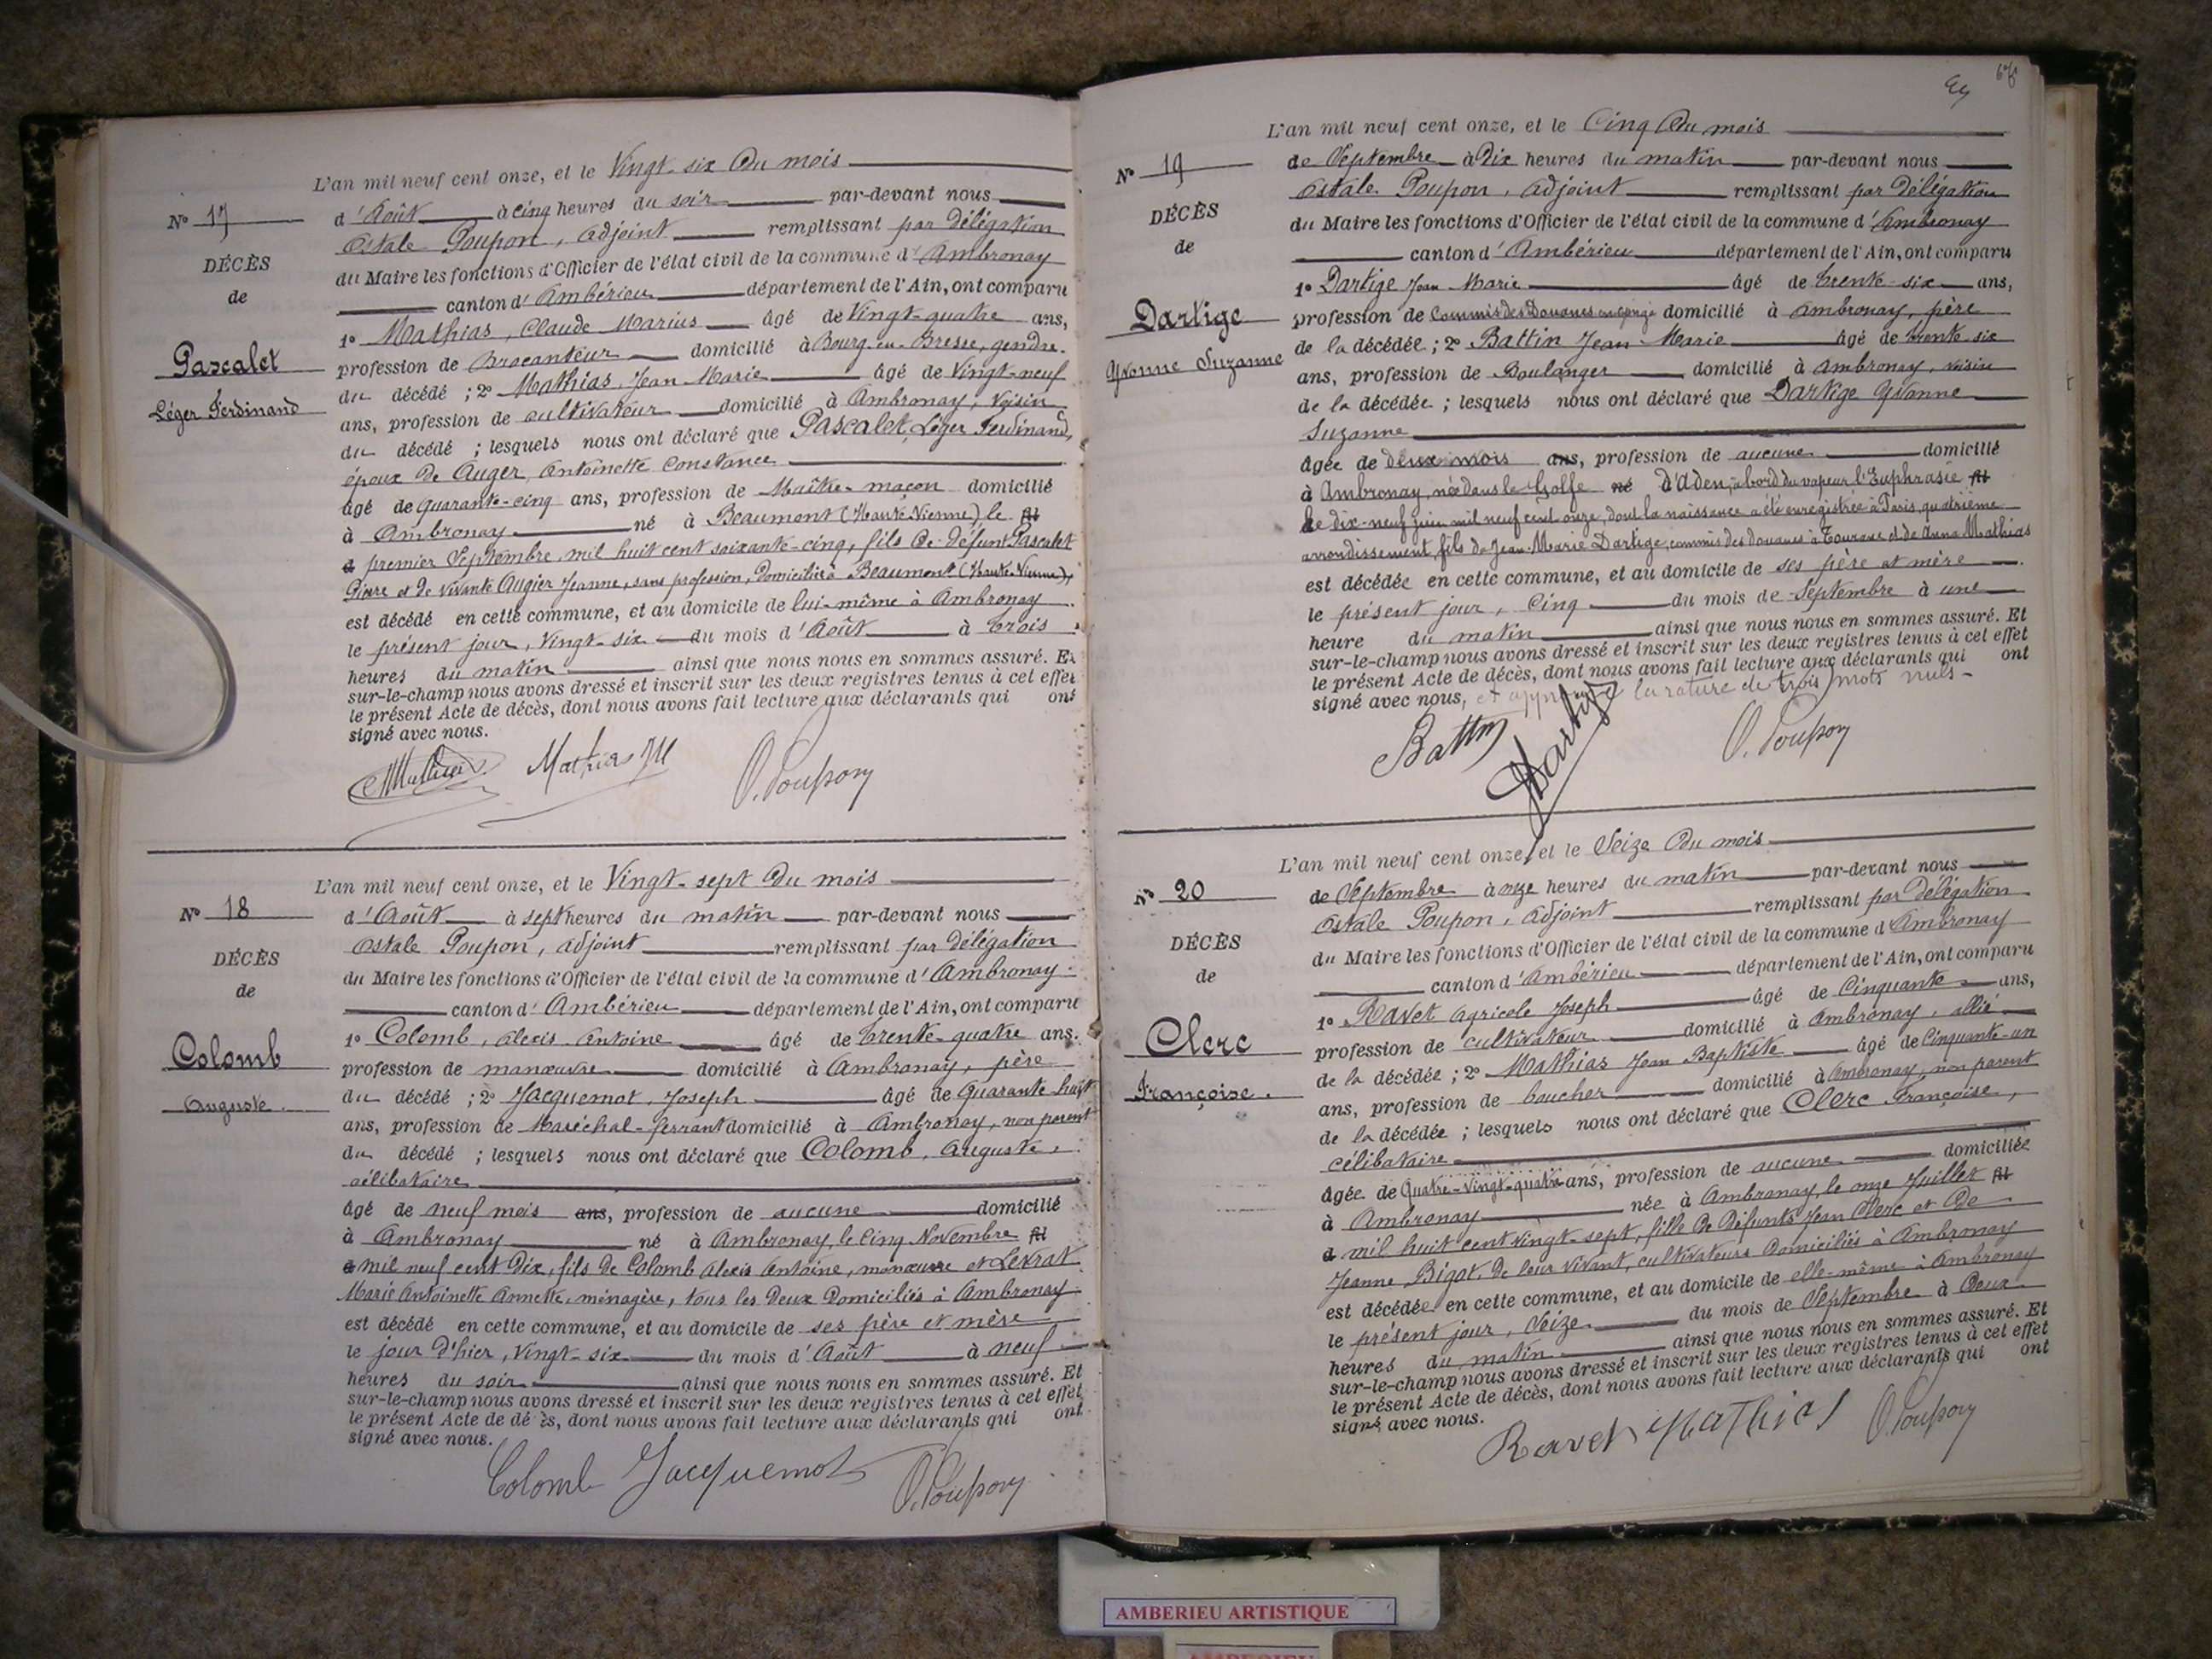 L'an mil neuf cent onze, et le Vingt-six du mois
N° 17
d'Août à cinq heures du soir par-devant nous
Ostale Poupon, adjoint remplissant par délégation
DÉCÈS
du Maire les fonctions d'Officier de l'état civil de la commune d'Ambronay
de
canton d'Ambérieu département de l'Ain, ont comparu
1° Mathias, Claude Marius âgé de Vingt-quatre ans,
Pascalet
profession de Brocanteur domicilié à Bourg-en-Bresse, gendre
Léger Ferdinand
du décédé ; 2° Mathias, Jean Marie âgé de Vingt-neuf
ans, profession de cultivateur domicilié à Ambronay, voisin
du décédé ; lesquels nous ont déclaré que Pascalet, Léger Ferdinand,
époux de Auger, Antoinette Constance
âgé de quarante-cinq ans, profession de Maître-maçon domicilié
à Ambronay né à Beaumont (Haute Vienne), le fil
d premier Septembre mil huit cent soixante-cinq, fils de défunt Pascalet
Pierre et de vivante Augier Jeanne, sans profession, domiciliée à Beaumont (Haute-Vienne),
est décédé en cette commune, et au domicile de lui-même à Ambronay
le présent jour, Vingt-six du mois d'Août à trois
heures du matin ainsi que nous nous en sommes assuré. Et
sur-le-champ nous avons dressé et inscrit sur les deux registres tenus à cet effet
le présent Acte de décès, dont nous avons fait lecture aux déclarants qui ont
signé avec nous.
Mathias JM O. Poupon
L'an mil neuf cent onze, et le Vingt-sept du mois
N° 18
d'Août à sept heures du matin par-devant nous
Ostale Poupon, adjoint remplissant par délégation
DÉCÈS
du Maire les fonctions d'Officier de l'état civil de la commune d'Ambronay
de
canton d'Ambérieu département de l'Ain, ont comparu
1° Colomb, Alexis Antoine âgé de trente-quatre ans.
Colomb
profession de manœuvre domicilié à Ambronay, père
Auguste.
du décédé ; 2° Jacquemot, Joseph âgé de Quarante-huit
ans, profession de Maréchal-ferrant domicilié à Ambronay, non parent
du décédé ; lesquels nous ont déclaré que Colomb, Auguste,
célibataire
âgé de neuf mois ans, profession de aucune domicilié
à Ambronay né à Ambronay, le cinq Novembre fil
d mil neuf cent dix, fils de Colomb Alexis Antoine, manœuvre et Levrat
Marie Antoinette Annette, ménagère, tous les deux domiciliés à Ambronay
est décédé en cette commune, et au domicile de ses père et mère
le jour d'hier, Vingt-six du mois d'Août à neuf
heures du soir ainsi que nous nous en sommes assuré. Et
sur-le-champ nous avons dressé et inscrit sur les deux registres tenus à cet effet
le présent Acte de dé ès, dont nous avons fait lecture aux déclarants qui ont
signé avec nous.
Colomb Jacquemot O. Poupon
L'an mil neuf cent onze, et le Cinq du mois
N° 19
de Septembre à Dix heures du matin par-devant nous
Ostale Poupon, adjoint remplissant par délégation
DÉCÈS
du Maire les fonctions d'Officier de l'état civil de la commune d'Ambronay
de
canton d'Ambérieu département de l'Ain, ont comparu
1° Dartige Jean Marie âgé de trente-six ans,
Dartige
profession de Commis des Douanes en congé domicilié à Ambronay, père
Yvonne Suzanne
de la décédée ; 2° Battin Jean Marie âgé de trente-six
ans, profession de Boulanger domicilié à Ambronay, voisin
de la décédée ; lesquels nous ont déclaré que Dartige Yvonne
Suzanne
âgée de deux mois ans, profession de aucune domicilié
à Ambronay, née dans le Golfe né d'Aden, à bord du vapeur l'Euphrasie fil
le dix-neuf juin mil neuf cent onze, dont la naissance a été enregistrée à Paris, quatrième
arrondissement, fils de Jean-Marie Dartige, commis des douanes à Tourane et de Anna Mathias
est décédée en cette commune, et au domicile de ses père et mère
le présent jour, Cinq du mois de Septembre à une
heure du matin ainsi que nous nous en sommes assuré. Et
sur-le-champ nous avons dressé et inscrit sur les deux registres tenus à cet effet
le présent Acte de décès, dont nous avons fait lecture aux déclarants qui ont
signé avec nous, et approuvé la rature de trois mots nuls-
Battin Dartige O. Poupon
L'an mil neuf cent onze, et le Seize du mois
N° 20
de Septembre à onze heures du matin par-devant nous
Ostale Poupon, adjoint remplissant par délégation
DÉCÈS
du Maire les fonctions d'Officier de l'état civil de la commune d'Ambronay
de
canton d'Ambérieu département de l'Ain, ont comparu
1° Ravet Agricole Joseph âgé de Cinquante ans,
Clerc
profession de cultivateur domicilié à Ambronay, allié
Françoise.
de la décédée ; 2° Mathias Jean Baptiste âgé de Cinquante-un
ans, profession de boucher domicilié à Ambronay, non parent
de la décédée ; lesquels nous ont déclaré que Clerc Françoise,
célibataire
âgée de Quatre-vingt-quatre ans, profession de aucune domiciliée
à Ambronay née à Ambronay, le onze Juillet fil
d mil huit cent vingt-sept, fille de défunts Jean Clerc et de
Jeanne Bigot, de leur vivant, cultivateurs domiciliés à Ambronay
est décédée en cette commune, et au domicile de elle-même à Ambronay
le présent jour, Seize du mois de Septembre à Deux
heures du matin ainsi que nous nous en sommes assuré. Et
sur-le-champ nous avons dressé et inscrit sur les deux registres tenus à cet effet
le présent Acte de décès, dont nous avons fait lecture aux déclarants qui ont
signé avec nous.
Ravet Mathias O. Poupon
AMBERIEU ARTISTIQUE